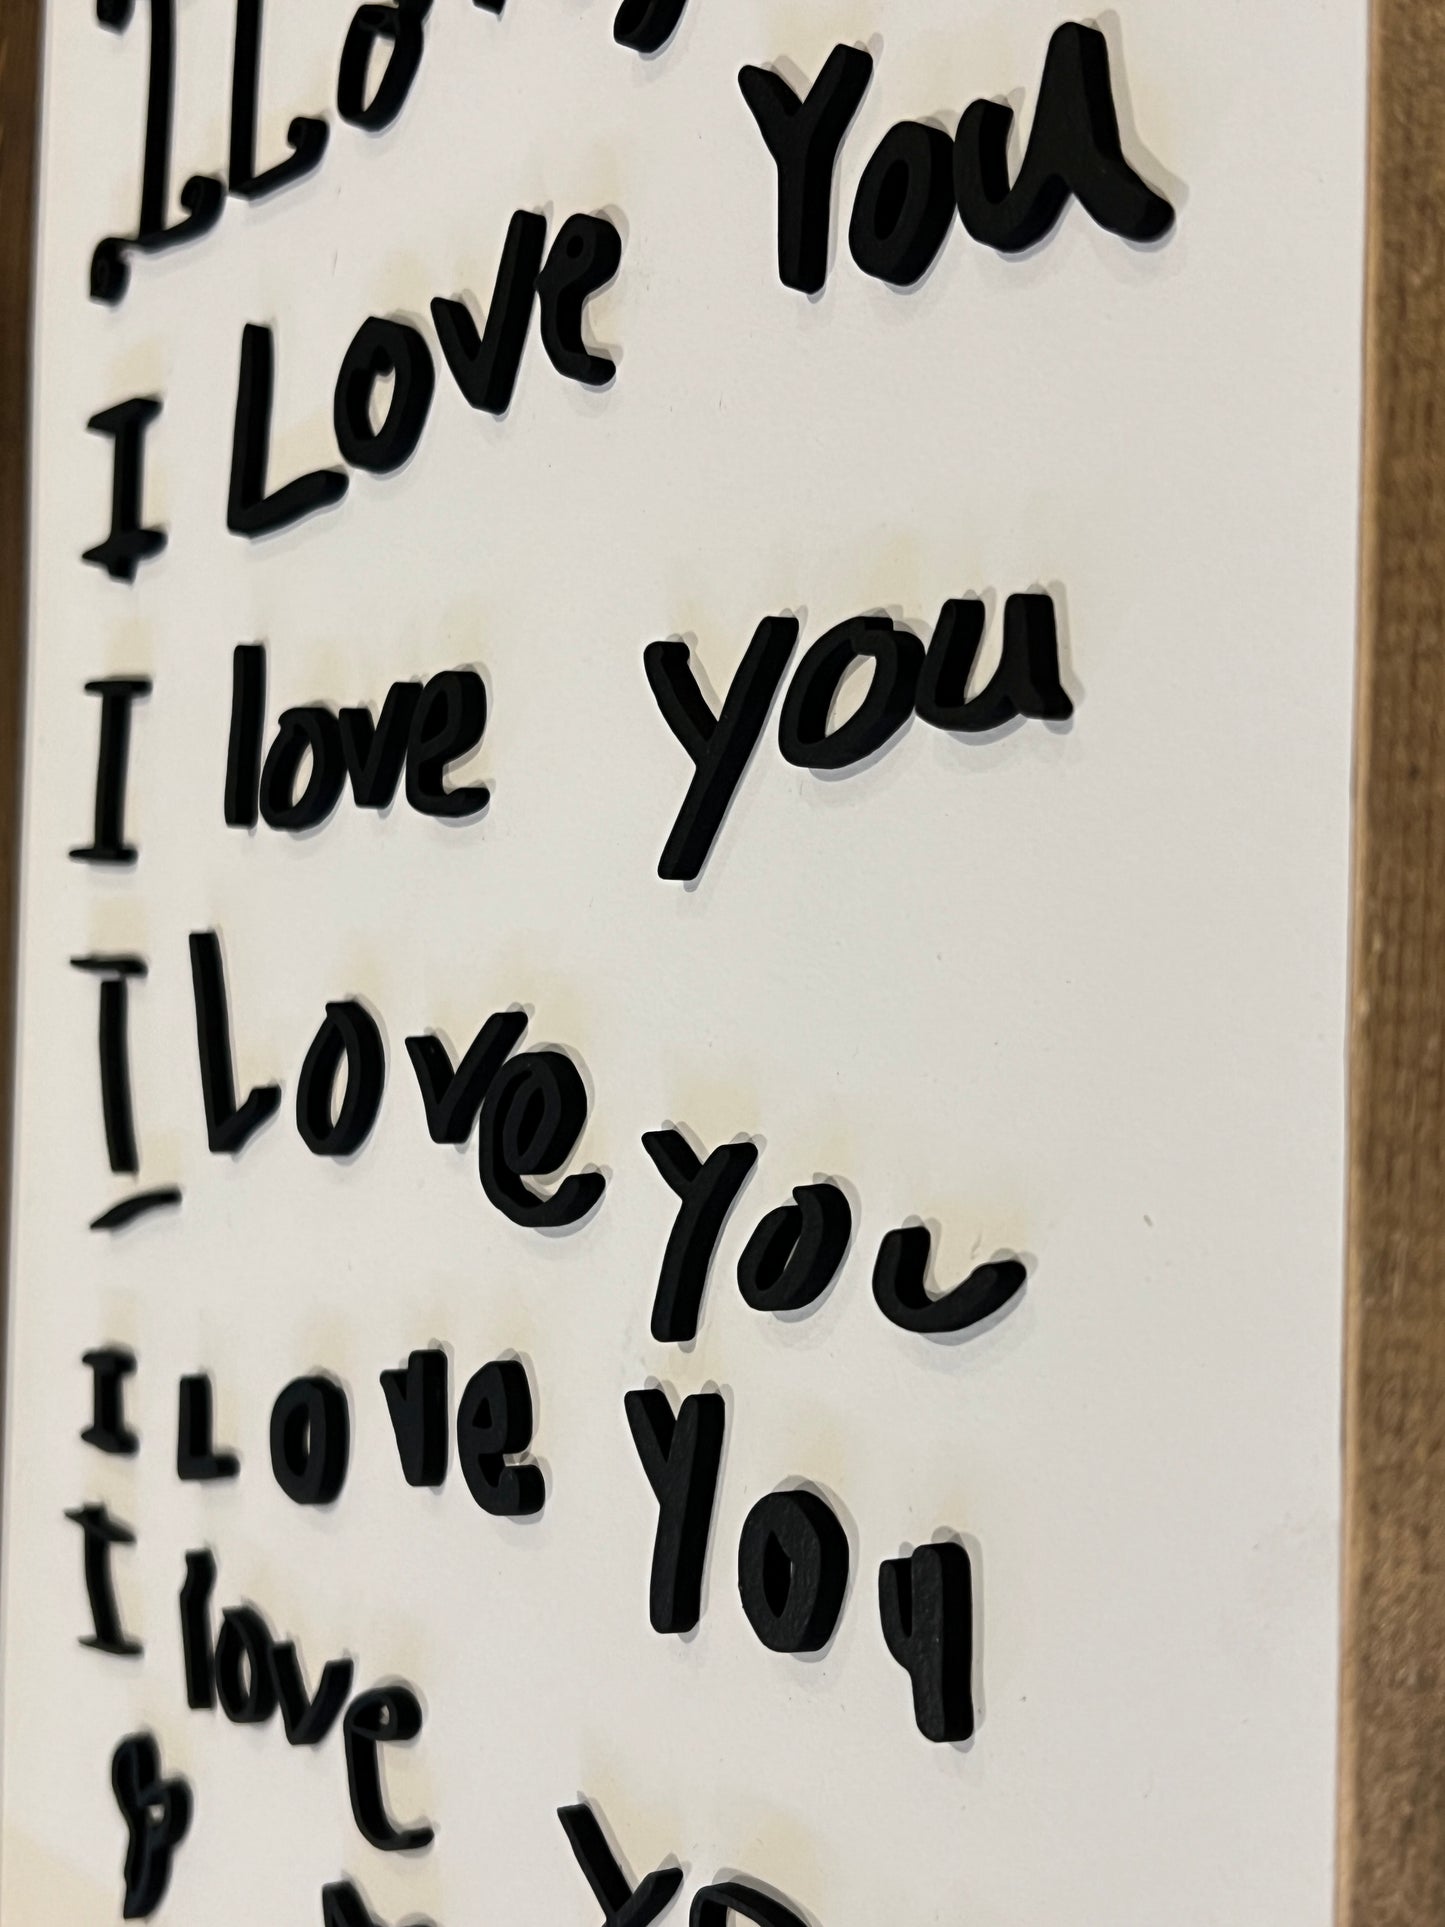 I Lo
I Love You
I love you
I Love you
I Love You
I love